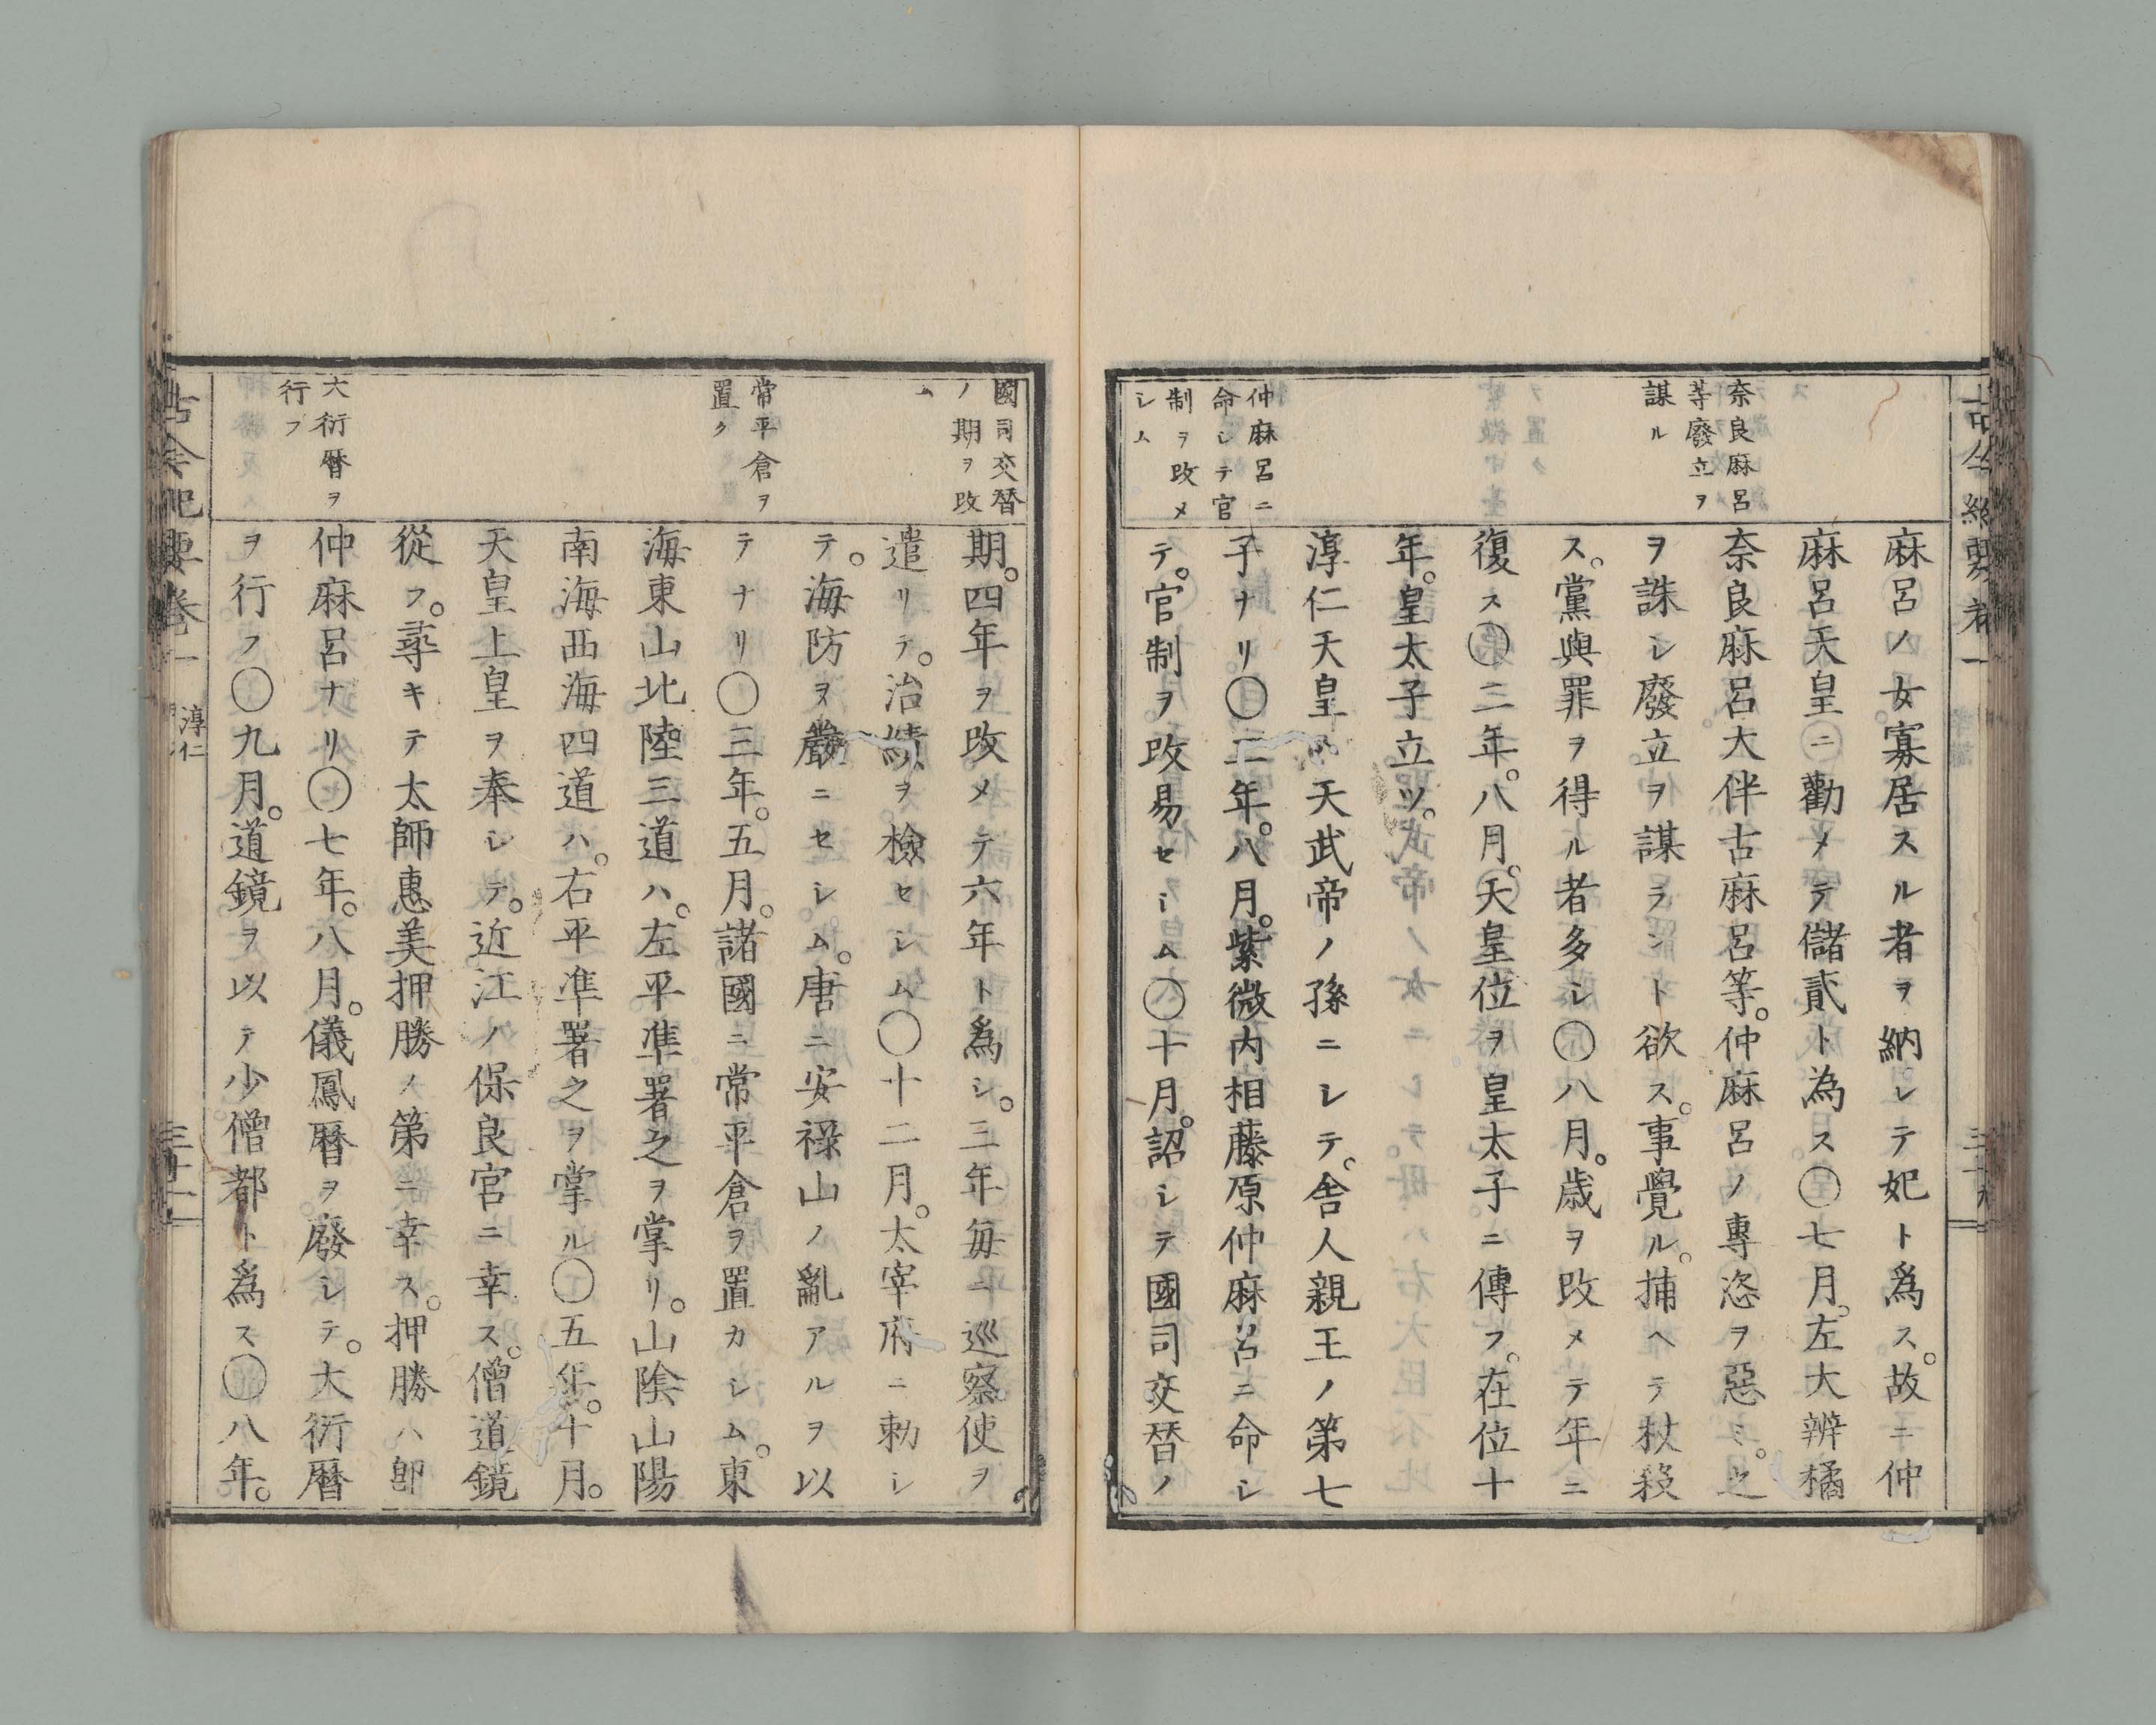 古今紀要卷一
奈良麻呂
等廢立ヲ
謀ル
仲麻呂ニ
命シテ官
制ヲ改メ
シム
麻呂ノ女寡居スル者ヲ納レテ妃ト爲ス。故ニ仲
麻呂天皇ニ勸メテ儲貳ト為ス〇七月。左大辨橘
奈良麻呂大伴古麻呂等。仲麻呂ノ專恣ヲ惡ミ。之
ヲ誅シ廢立ヲ謀ラント欲ス。事覺ル。捕ヘテ杖殺
ス。黨與罪ヲ得ル者多シ〇八月。歳ヲ改メテ年ニ
復ス〇二年。八月。天皇位ヲ皇太子ニ傳フ。在位十
年。皇太子立ツ。
淳仁天皇ハ天武帝ノ孫ニシテ。舎人親王ノ第七
子ナリ〇二年。八月。紫微内相藤原仲麻呂ニ命シ
テ。官制ヲ改易セシム〇十月。詔シテ國司交替ノ
國司交替
ノ期ヲ改
ム
常平倉ヲ
置ク
大衍暦ヲ
行フ
期。四年ヲ改メテ六年ト爲シ。三年毎ニ巡察使ヲ
遣リテ。治績ヲ檢セシム〇十二月。太宰府ニ勅シ
テ。海防ヲ嚴ニセシム。唐ニ安祿山ノ亂アルヲ以
テナリ〇三年。五月。諸國ニ常平倉ヲ置カシム。東
海東山北陸三道ハ。左平準署之ヲ掌リ。山陰山陽
南海西海四道ハ。右平準署之ヲ掌ル〇五年。十月。
天皇上皇ヲ奉シテ。近江ノ保良宮ニ幸ス。僧道鏡
從フ。尋キテ太師惠美押勝ノ第ニ幸ス。押勝ハ卽
仲麻呂ナリ〇七年。八月。儀鳳暦ヲ廢シテ。大衍暦
ヲ行フ〇九月。道鏡ヲ以テ少僧都ト爲ス〇八年。
古今紀要卷一
淳仁
三十一